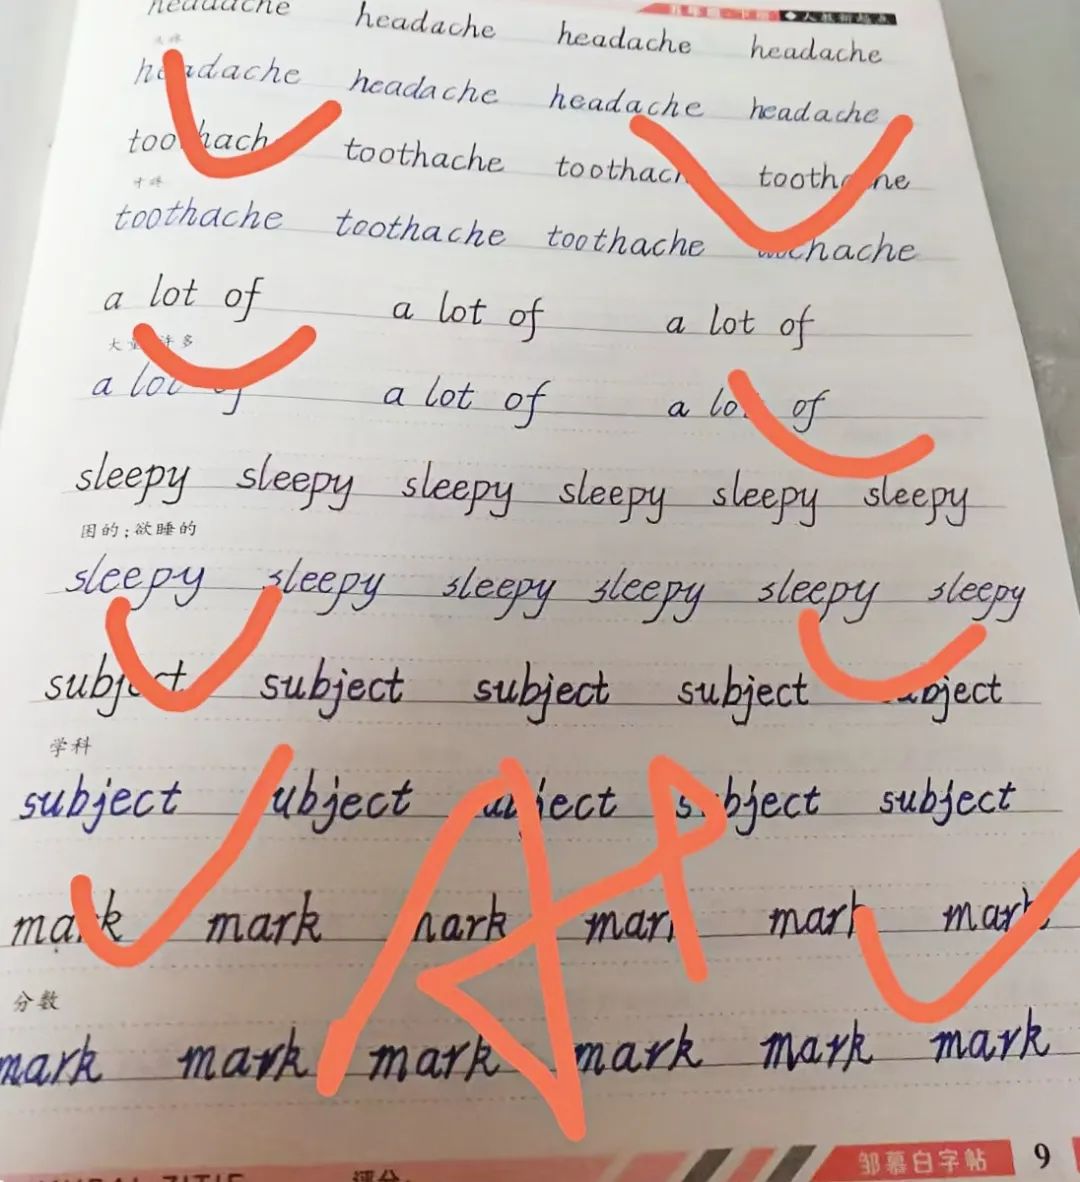 headache headache headache headache
头疼
headache headache headache headache
toothache toothache toothache toothache
牙疼
toothache toothache toothache toothache
a lot of a lot of a lot of
大量;许多
a lot of a lot of a lot of
sleepy sleepy sleepy sleepy sleepy sleepy
困的;欲睡的
sleepy sleepy sleepy sleepy sleepy sleepy
subject subject subject subject subject
学科
subject subject subject subject subject
mark mark mark mark mark mark
分数
mark mark mark mark mark mark
A+
评分
邹慕白字帖 9